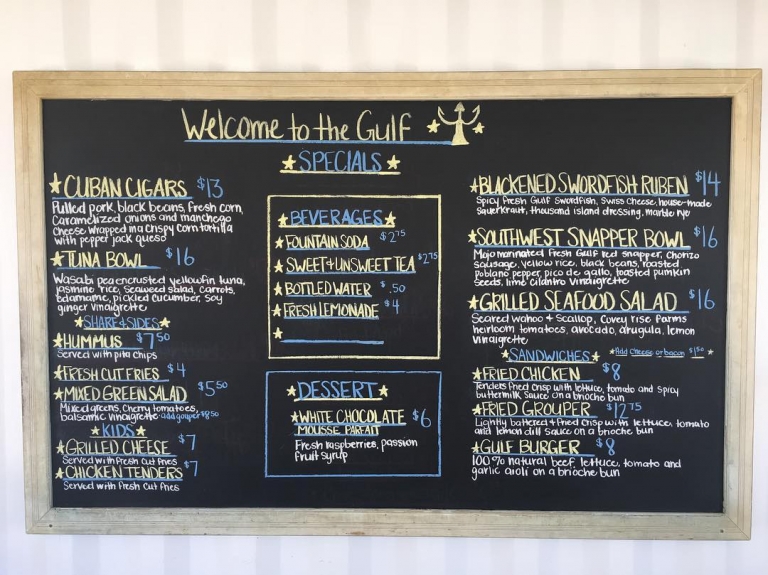 Welcome to the Gulf
SPECIALS
CUBAN CIGARS $13
Pulled pork, black beans, fresh corn,
Caramelized onions and manchego
Cheese wrapped in a crispy corn tortilla
with pepper jack queso
TUNA BOWL $16
Wasabi pea encrusted yellowfin tuna,
jasmine rice, seaweed salad, carrots,
edamame, pickled cucumber, soy
ginger vinaigrette
SHARE & SIDES
HUMMUS $7 50
Served with pita chips
FRESH CUT FRIES $4
MIXED GREEN SALAD $5 50
Mixed greens, cherry tomatoes,
balsamic vinaigrette add grouper $8.50
KIDS
GRILLED CHEESE $7
Served with fresh cut fries
CHICKEN TENDERS $7
Served with fresh cut fries
BEVERAGES
FOUNTAIN SODA $2 75
SWEET & UNSWEET TEA $2 75
BOTTLED WATER $.50
FRESH LEMONADE $4
DESSERT
WHITE CHOCOLATE $6
MOUSSE PARFAIT
Fresh raspberries, passion
fruit syrup
BLACKENED SWORDFISH RUBEN $14
Spicy fresh Gulf swordfish, Swiss cheese, house-made
sauerkraut, thousand island dressing, marble rye
SOUTHWEST SNAPPER BOWL $16
Mojo marinated Fresh Gulf red snapper, chorizo
sausage, yellow rice, black beans, roasted
poblano pepper, pico de gallo, toasted pumkin
seeds, lime cilantro vinaigrette
GRILLED SEAFOOD SALAD $16
Seared Wahoo & Scallop, Covey rise Farms
heirloom tomatoes, avocado, arugula, lemon
vinaigrette
SANDWICHES *Add Cheese or bacon $1.50*
FRIED CHICKEN $8
Tenders fried crisp with lettuce, tomato and spicy
buttermilk sauce on a brioche bun
FRIED GROUPER $12 75
Lightly battered & fried crisp with lettuce, tomato
and lemon dill sauce on a brioche bun
GULF BURGER $8
100% natural beef, lettuce, tomato and
garlic aioli on a brioche bun